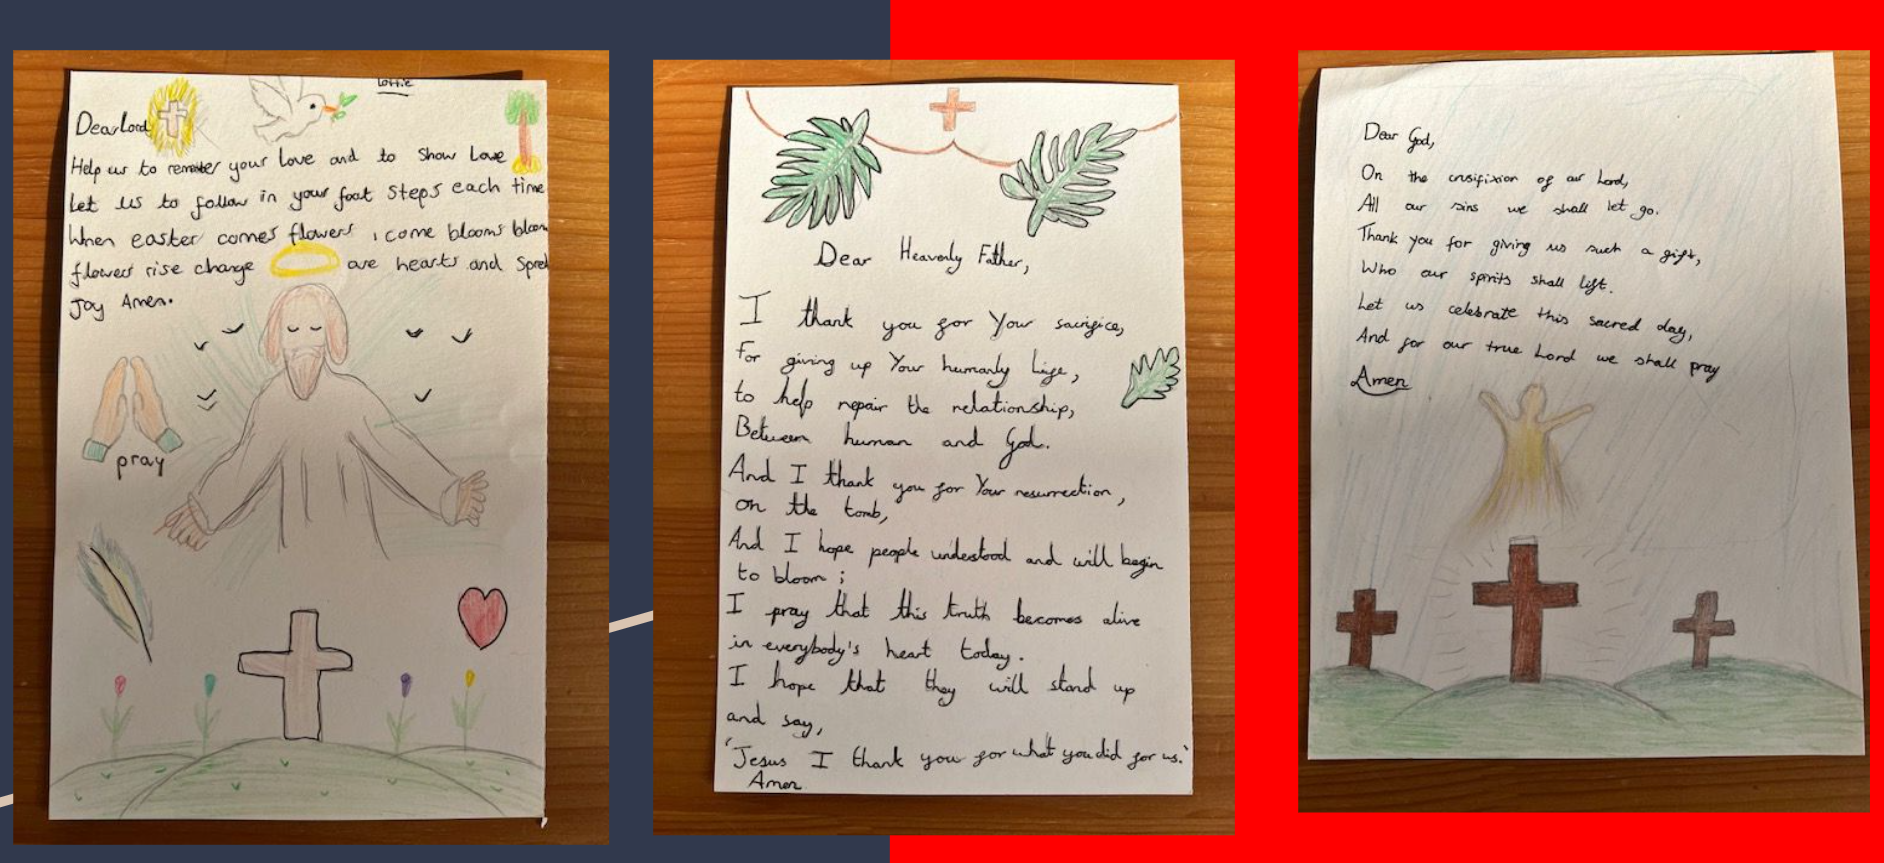 Lottie
Dear Lord
Help us to remeber your Love and to Show Love
Let us to follow in your foot Steps each time
When easter comes flowers , come blooms bloom
flowers rise change are hearts and Spred
Joy Amen.
pray
Dear Heavenly Father,
I thank you for Your sacrifice,
For giving up Your humanly Life,
to help repair the relationship,
Between human and God.
And I thank you for Your resurrection,
on the tomb,
And I hope people understood and will begin
to bloom ;
I pray that this truth becomes alive
in everybody's heart today.
I hope that they will stand up
and say,
'Jesus I thank you for what you did for us.'
Amen
Dear God,
On the crusifixion of our Lord,
All our sins we shall let go.
Thank you for giving us such a gift,
Who our spirits shall lift.
Let us celebrate this sacred day,
And for our true Lord we shall pray
Amen